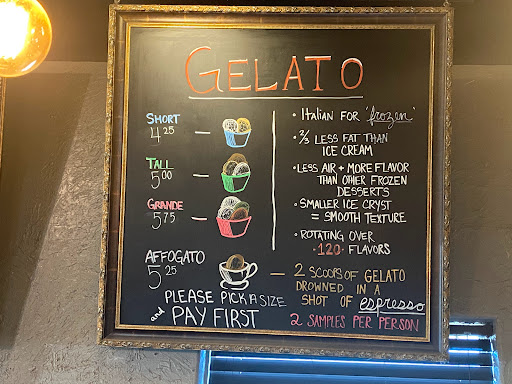 GELATO
SHORT
4 25
TALL
5 00
GRANDE
5 75
AFFOGATO
5 25
PLEASE PICK A SIZE
and PAY FIRST
• Italian for 'frozen'
• 2/3 LESS FAT THAN
ICE CREAM
• LESS AIR + MORE FLAVOR
THAN OTHER FROZEN
DESSERTS
• SMALLER ICE CRYST
= SMOOTH TEXTURE
• ROTATING OVER
120 FLAVORS
2 SCOOPS OF GELATO
DROWNED IN A
SHOT OF espresso
2 SAMPLES PER PERSON